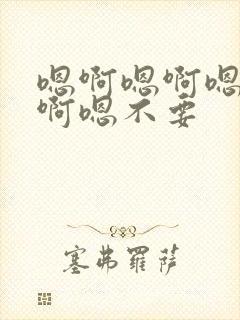 嗯啊嗯啊嗯
啊嗯不要
塞弗羅萨